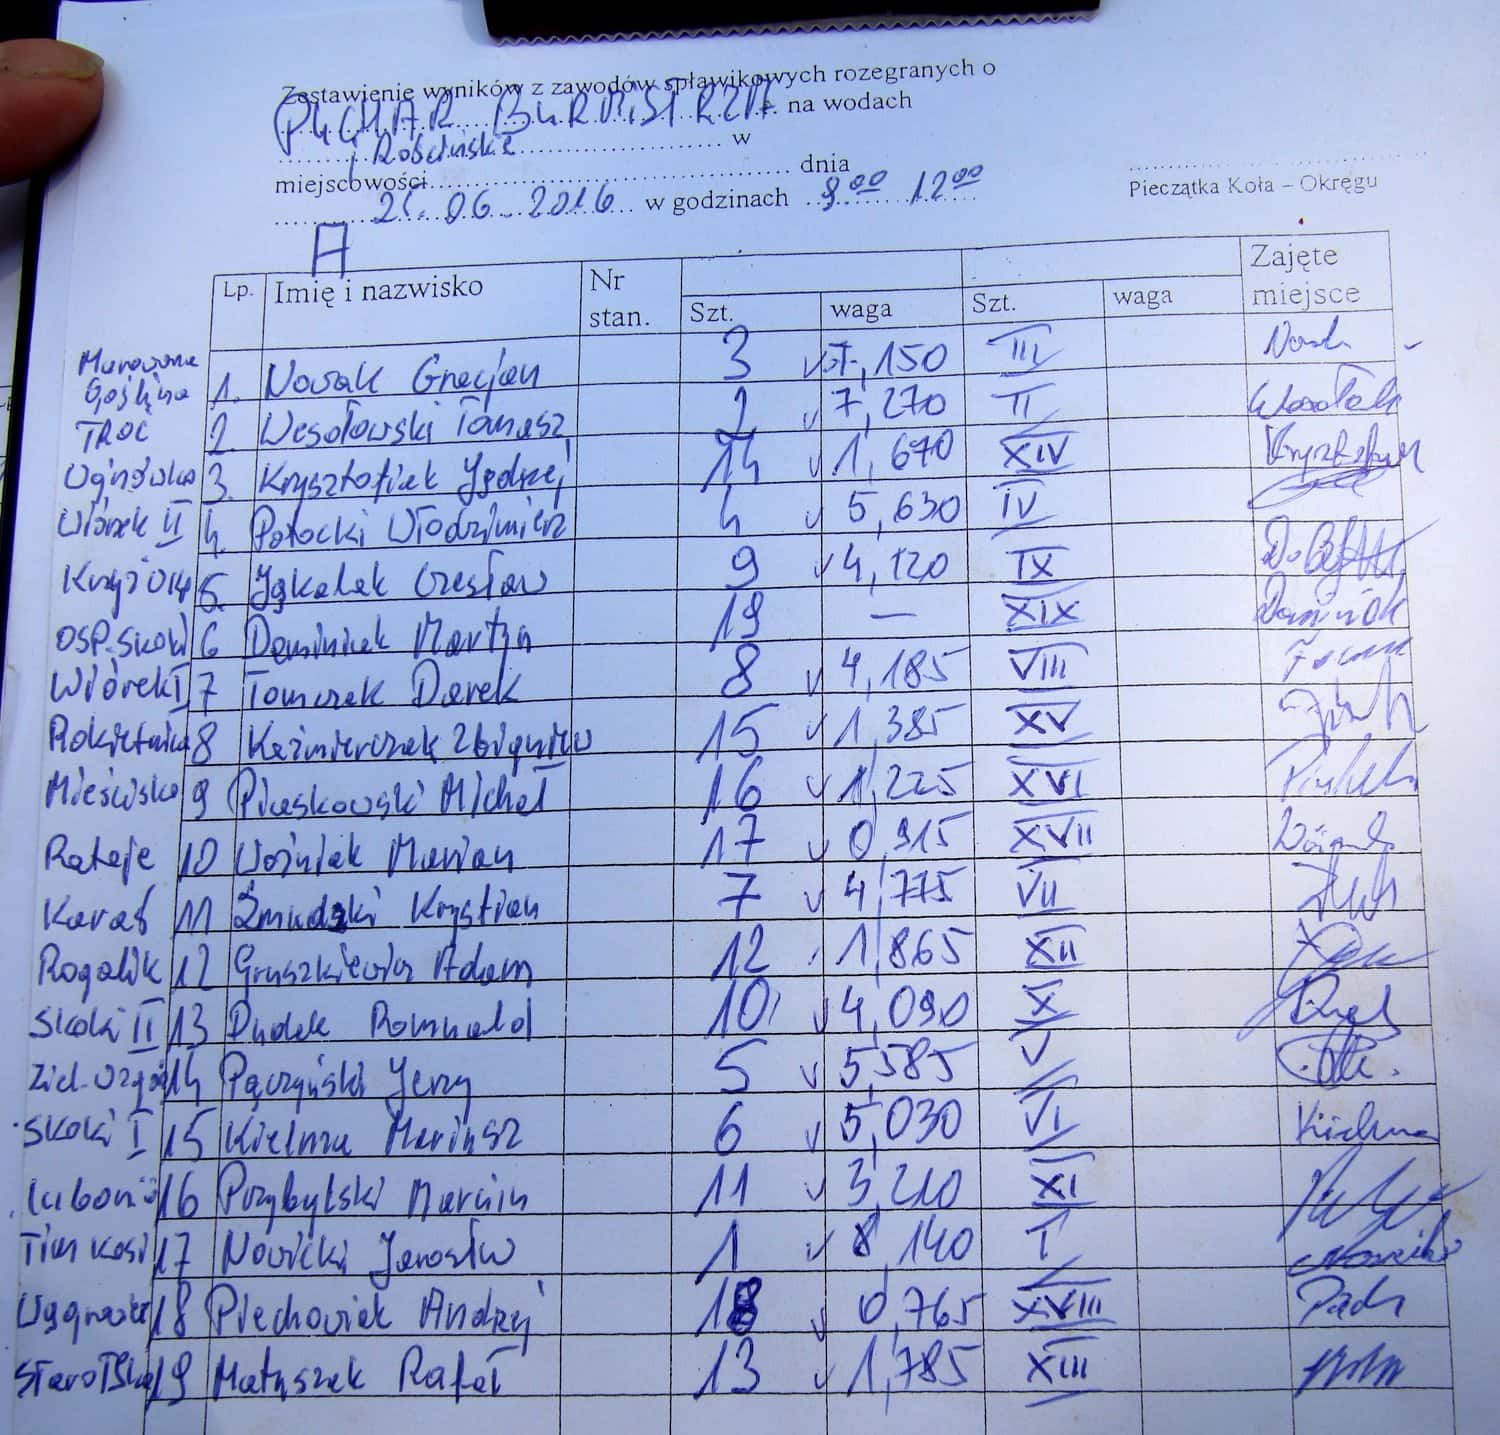 Zestawienie wyników z zawodów spławikowych rozegranych o
PUCHAR BURMISTRZA na wodach
j Rościńskie w
miejscowości dnia
25.06.2016 w godzinach 8 00 12 00
Pieczątka Koła – Okręgu
A
Lp. Imię i nazwisko Nr stan. Szt. waga Szt. waga Zajęte miejsce
Murowana Goślina 1. Nowak Gracjan 3 7,150 III
TROĆ 2. Wesołowski Tomasz 2 7,270 II
3. Krysztofiak Jędrzej 14 1,670 XIV
Wiórek II 4. Potocki Włodzimierz 4 5,630 IV
5. Jąkalak Czesław 9 4,120 IX
OSP.Skoki 6 Dominiak Martyn 19 — XIX Dominiak
Wiórek I 7 Tomczak Darek 8 4,185 VIII
Rokietnica 8 Kaźmierczak Zbigniew 15 1,385 XV
Mieścisko 9 Piaskowski Michał 16 1,225 XVI
Rataje 10 Woźniak Marian 17 0,915 XVII
Karaś 11 Żmudzki Krystian 7 4,775 VII
Rogalik 12 Gruszkiewicz Adam 12 1,865 XII
Skoki II 13 Dudek Romuald 10 4,090 X
14 Pączyński Jerzy 5 5,585 V
Skoki I 15 Kielma Mariusz 6 5,030 VI Kielma
Luboń 16 Przybylski Marcin 11 3,210 XI
17 Nowicki Jarosław 1 8,140 I
18 Piechowiak Andrzej 18 0,765 XVIII
19 Matyszak Rafał 13 1,785 XIII